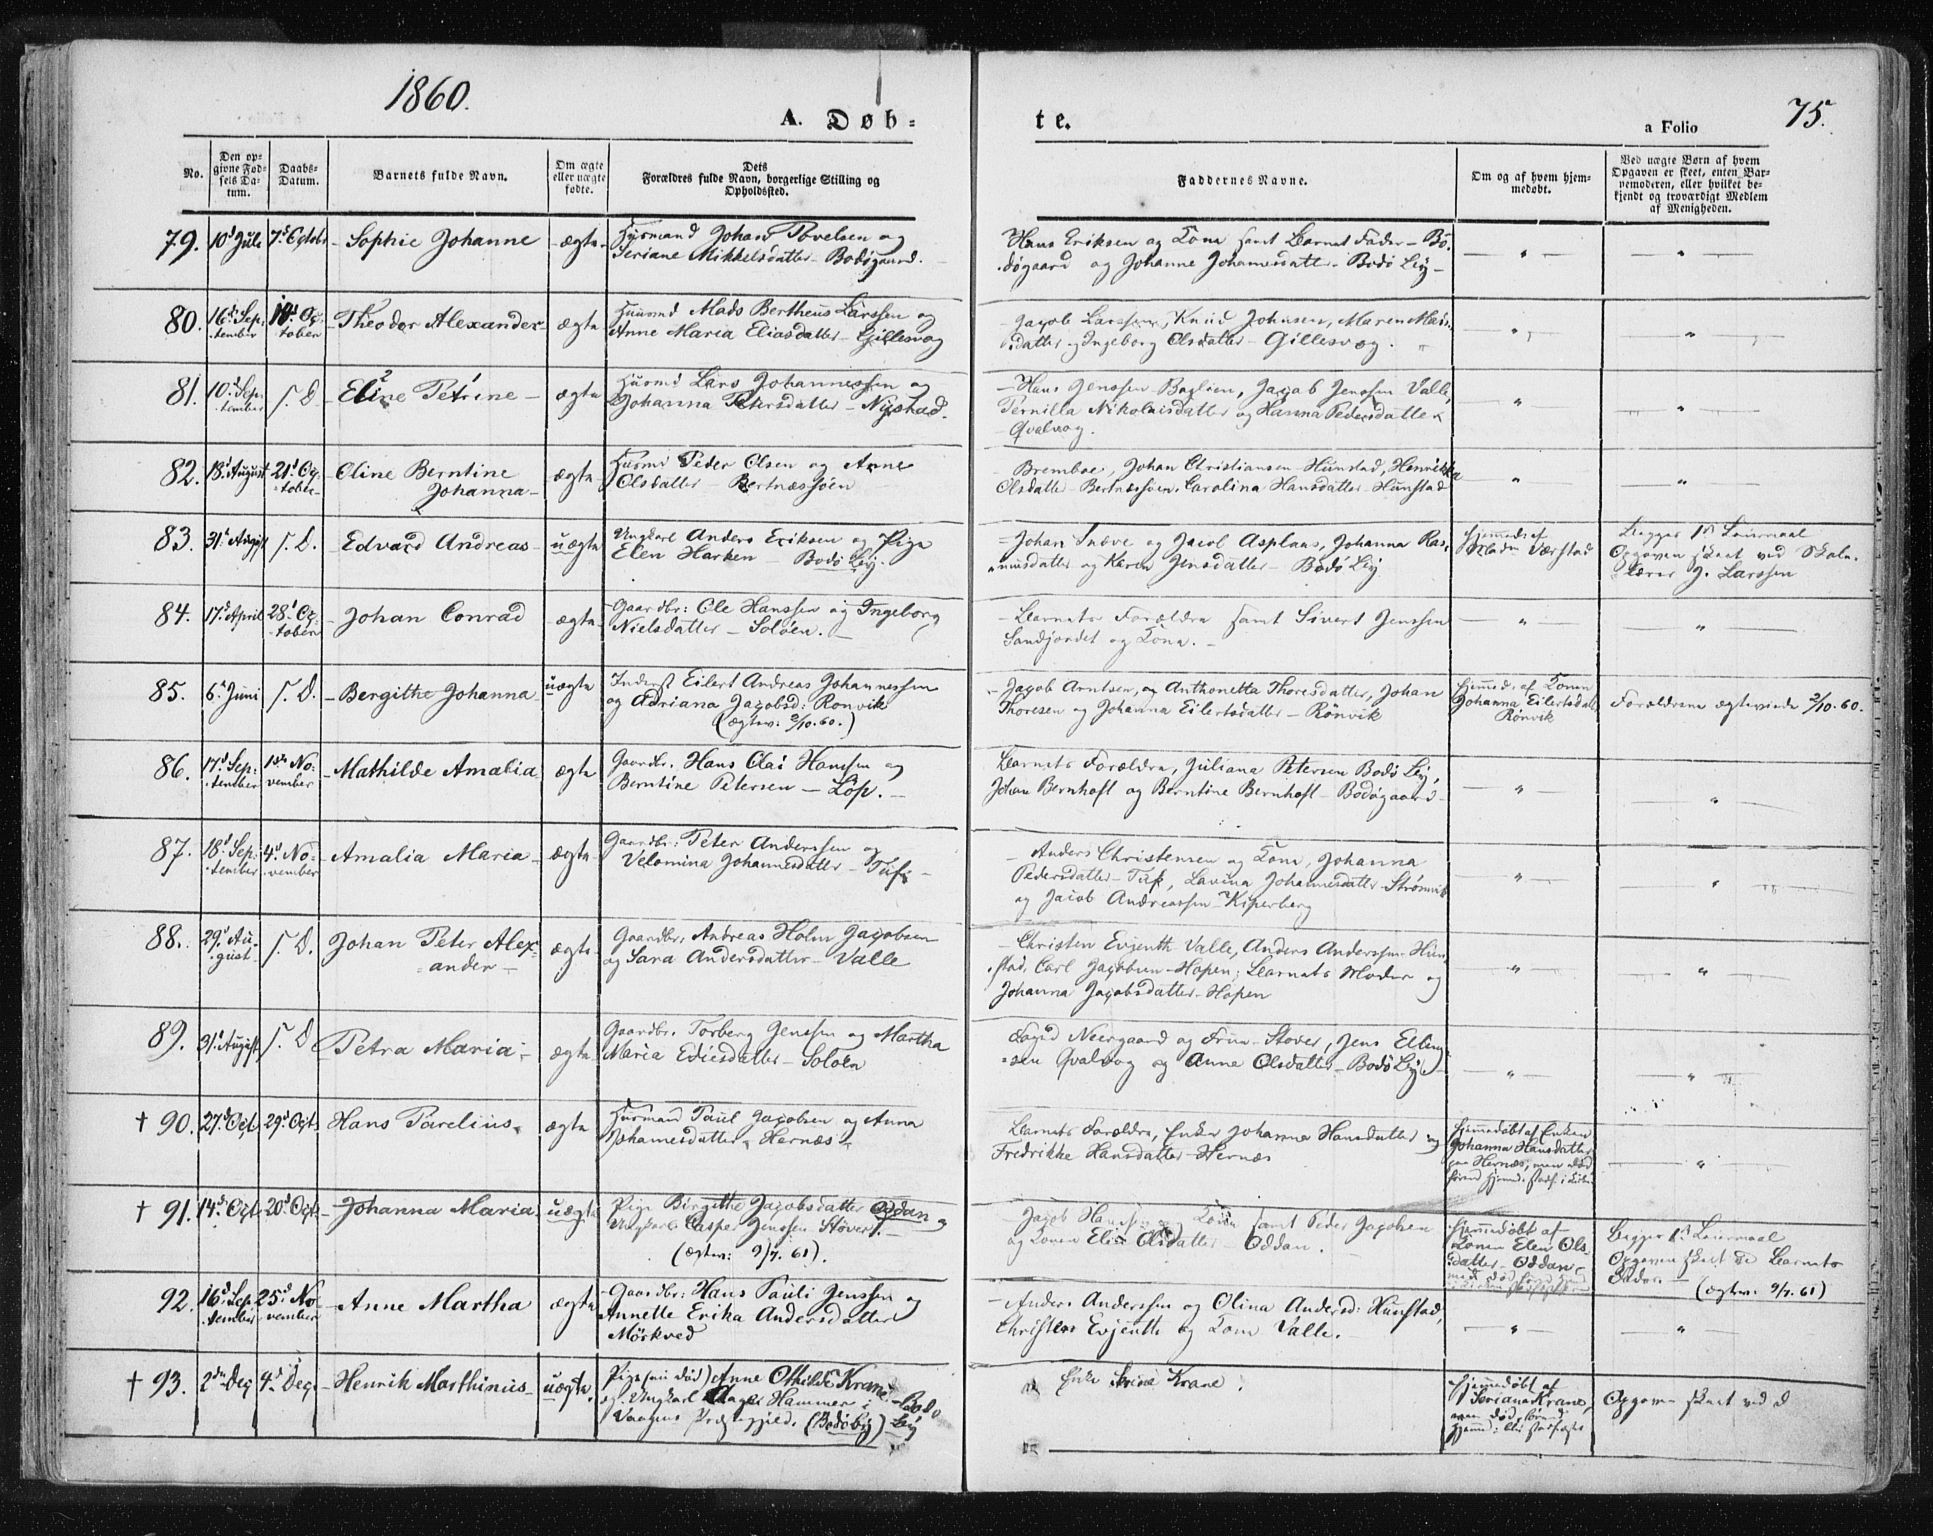 1860.
A. Døb-
te.
a Folio
75.
No.
Den op-
givne Fød-
sels Da-
tum.
Daabs-
Datum.
Barnets fulde Navn.
Om ægte
eller uægte
fødte.
Dets
Forældres fulde Navn, borgerlige Stilling og
Opholdssted.
Faddernes Navne.
Om og af hvem hjem-
medøbt.
Ved uægte Børn af hvem
Opgaven er skeet, enten Bar-
nemoderen, eller hvilket be-
kjendt og troværdigt Medlem
af Menigheden.
79. 10d Juli 7d Octobr Sophie Johanne ægte Huusmand Johan Povelsen og
Seriane Mikkelsdatter - Bodøgaard.
Hans Eriksen og Kone samt Barnets Fader - Bo-
døgaard og Johanne Johannesdatter - Bodø By - " - - " -
80. 16d Sep-
tember
Oc-
tober
Theodor Alexander ægte Huusmd Mads Bertheus Larssen og
Anne Maria Eliasdatter - Gillesvog
Jacob Larssen, Knud Johnsen, Maren
datter og Ingeborg Olsdatter - Gillesvog. - " - - " -
81. 10d Sep-
tember
s. D. Eline Petrine ægte Huusmd Lars Johannessen og
Johanna Petersdatter - Nystad.
Hans Jenssen Jacob Jenssen Valle,
Pernilla Nikolaisdatter og Hanna Pedersdatter
Qvalvog. - " - - " -
82. 18d August 21d Oc-
tober
Oline Berntine
Johanna
ægte Huusmd Peder Olsen og Anne
Olsdatter - Bertnæssøen
Bremboe, Johan Christiansen Hunstad, Henrikke
Olsdatter - Bertnæssøen, Carolina Hansdatter - Hunstad - " - - " -
83. 31d August s. D. Edvard Andreas uægte Ungkarl Anders Eriksen og Pige
Elen Harken - Bodø By.
Johan og Jacob Asplaas, Johanna Ras-
musdatter og Karen Jensdatter - Bodø By
Hjemmed. af
Værstad
Begges 1st Leiermaal
Opgaven skeet ved Skole-
lærer J. Larssen
84. 17d April 28d Oc-
tober
Johan Conrad ægte Gaardbr: Ole Hanssen og Ingeborg
Nielsdatter - Soløen.
Barnets Forældre samt Sivert Jenssen
Sandjordet og Kone. - " - - " -
85. 6d Juni s. D. Bergithe Johanna uægte Inderst Eilert Andreas Johannessen
og Adriana Jacobsd: Rønvik
(ægtev: 2/10.60.)
Jacob Arntsen, og Anthonetta Thoresdatter, Johan
Thoresen og Johanna Eilertsdatter - Rønvik
Hjemmed. af Konen
Johanna Eilertsdatt
Rønvik
Forældrene ægteviede 2/10.60.
86. 17d Sep-
tember
1ste No-
vember
Mathilde Amalia ægte Gaardbr. Hans Olai Hanssen og
Berntine Petersen - Løp.
Barnets Forældre, Juliana Petersen Bodø By,
Johan Bernhoft og Berntine Bernhoft - Bodøgaard - " - - " -
87. 18d Sep-
tember
4d No-
vember
Amalia Maria ægte Gaardbr: Peter Anderssen og
Velomina Johannesdatter -
Anders Christensen og Kone, Johanna
Pedersdatter - Lavina Johannesdatter - Strømvik
og Jacob Andreassen - Kiperberg - " - - " -
88. 29d Au-
gust
s. D. Johan Peter Alex-
ander
ægte Gaardbr. Andreas Holm Jacobsen
og Sara Andersdatter - Valle
Christen Evjenth Valle, Anders Anderssen Hun-
stad, Carl Jacobsen - Hopen; Barnets Moder og
Johanna Jacobsdatter - Hopen - " - - " -
89. 31d August s. D. Petra Maria ægte Gaardbr. Torberg Jenssen og Martha
Maria Ediesdatter - Soløen
Foged Neergaard og Frue - Støver, Jens Elling-
sen Qvalvog og Anne Olsdatter - Bodø By - " - - " -
† 90. 27d Oct. 29d Oct. Hans Parelius ægte Huusmand Paul Jacobsen og Anna
Johannesdatter - Hernæs
Barnets Forældre, Enken Johanna Hansdatter og
Fredrikke Hansdatter - Hernæs
Hjemmedøbt af Enken
Johanna Hansdatter
paa Hernæs; men død
- " -
† 91. 14d Oct. 20d Oct. Johanna Maria uægte Pige Birgithe Jacobsdatter Oddan og
Ungkarl Casper Jenssen Støver.
(ægtev: 9/7. 61).
Jacob og Kone samt Peder Jacobsen
og Konen Elen Olsdatter - Oddan.
Hjemmedøbt af
Konen Elen Ols-
datter - Oddan
Begges 1st Leiermaal
Opgaven skeet af Barnets
Fader. (ægtev: 9/7.61)
92. 16d Sep-
tember
25d No-
vember
Anne Martha ægte Gaardbr: Hans Pauli Jenssen og
Annette Erika Andersdatter
Mørkved
Anders Anderssen og Olina Andersd: Hunstad,
Christen Evjenth og Kone Valle. - " - - " -
† 93. 2den Dec. 4d Dec. Henrik Marthinus uægte Pige (nu død) Anne Othilde Krane - Bodø
By
og Ungkarl Hammer i
Vaagens Præstegjeld. (Bodø By)
Enke Krane.
Hjemmedøbt af
Seriana Krane,
men død
Opgaven skeet ved d